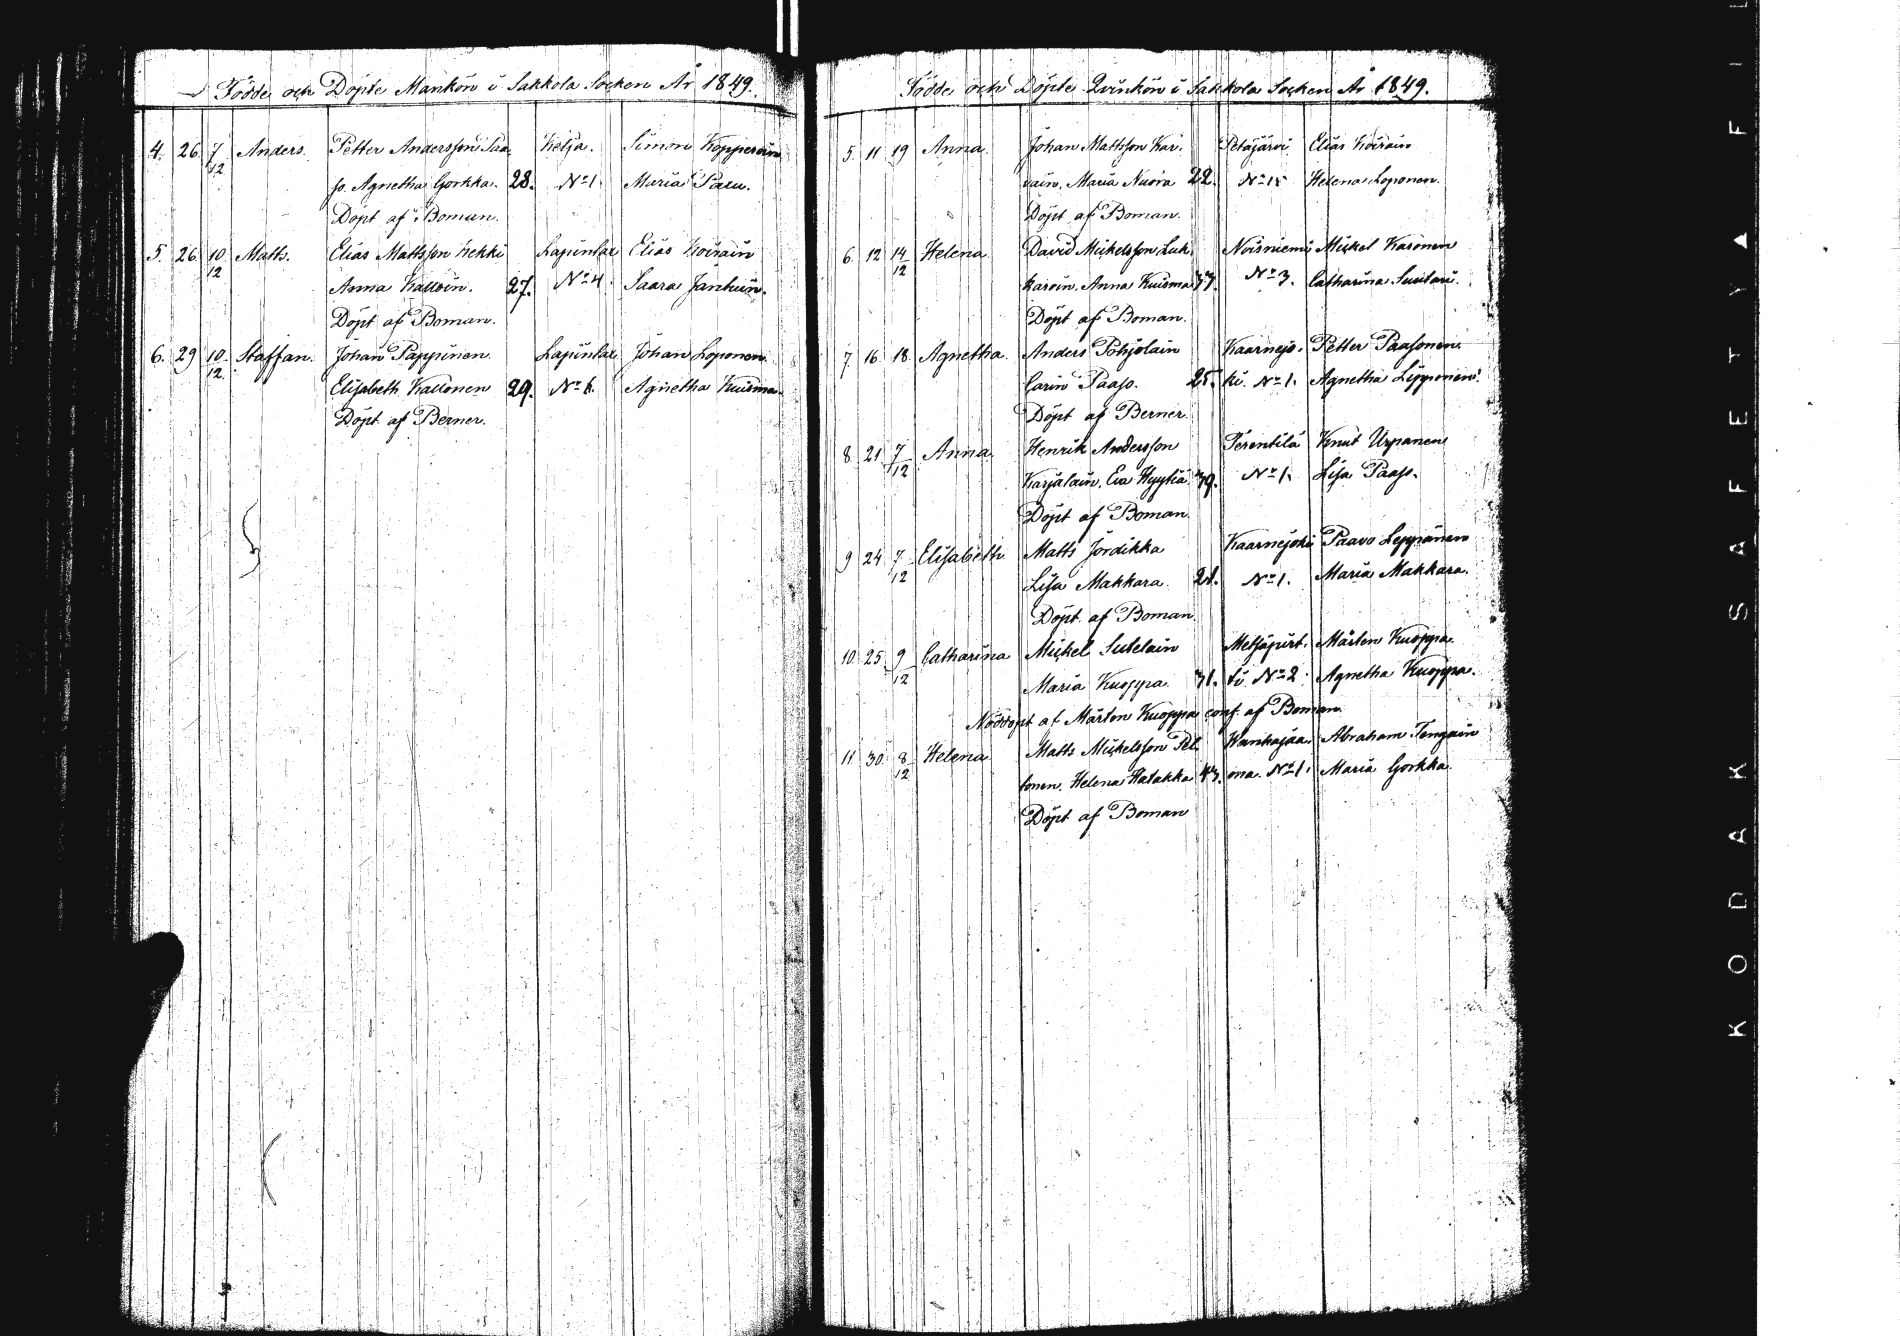 Födde och Döpte Mankön i Sakkola Socken År 1849.
4. 26. 7/12 Anders. Petter Andersson Paa- Kelja. Simon Kopperoin
so. Agnetha Gorkka. 28. No 1. Maria Paau.
Döpt af Boman.
5. 26. 10/12 Matts. Elias Mattsson Kekki Lapinlax Elias Koirain
Anna Kalloin. 27. No 4. Saara Janhuin.
Döpt af Boman.
6. 29 10/12 Staffan. Johan Pappinen Lapinlax Johan Loponen.
Elisabeth Kallonen 29. No 6. Agnetha Kuisma.
Döpt af Berner.
Födde och Döpte Qvinkön i Sakkola Socken År 1849.
5. 11 19 Anna. Johan Mattsson Kar- Petäjärvi Elias Koirain
vain. Maria Nuora 22. No 15 Helena Loponen.
Döpt af Boman.
6. 12 14/12 Helena David Mickelsson Luk- Noisniemi Mickel Kasonen
karoin. Anna Kuisma 37. No 3. Catharina Suutari.
Döpt af Boman.
7. 16. 18. Agnetha. Anders Pohjolain Kaarnejo- Petter Paasonen.
Carin Paaso. 25. ki. No 1. Agnetha Lipponen.
Döpt af Berner.
8. 21 7/12 Anna. Henrik Andersson Terentilä Knut Urpanen
Karjalain. Eva Hyytiä 39. No 1. Lisa Paaso.
Döpt af Boman.
9 24 7/12 Elisabeth Matts Jördikka Kaarnejoki Paavo Leppänen
Lisa Makkara. 21. No 1. Maria Makkara.
Döpt af Boman
10. 25. 9/12 Catharina Mickel Sutelain Metsäpirt- Mårten Kuoppa.
Maria Kuoppa. 31. ti No 2. Agnetha Kuoppa.
Nöddöpt af Mårten Kuoppa conf. af Boman.
11. 30. 8/12 Helena Matts Mickelsson Pel- Wanhajaa- Abraham Tengain
tonen. Helena Hatakka 43. ma. No 1. Maria Gorkka.
Döpt af Boman
KODAK SAFETY ▲ FIL